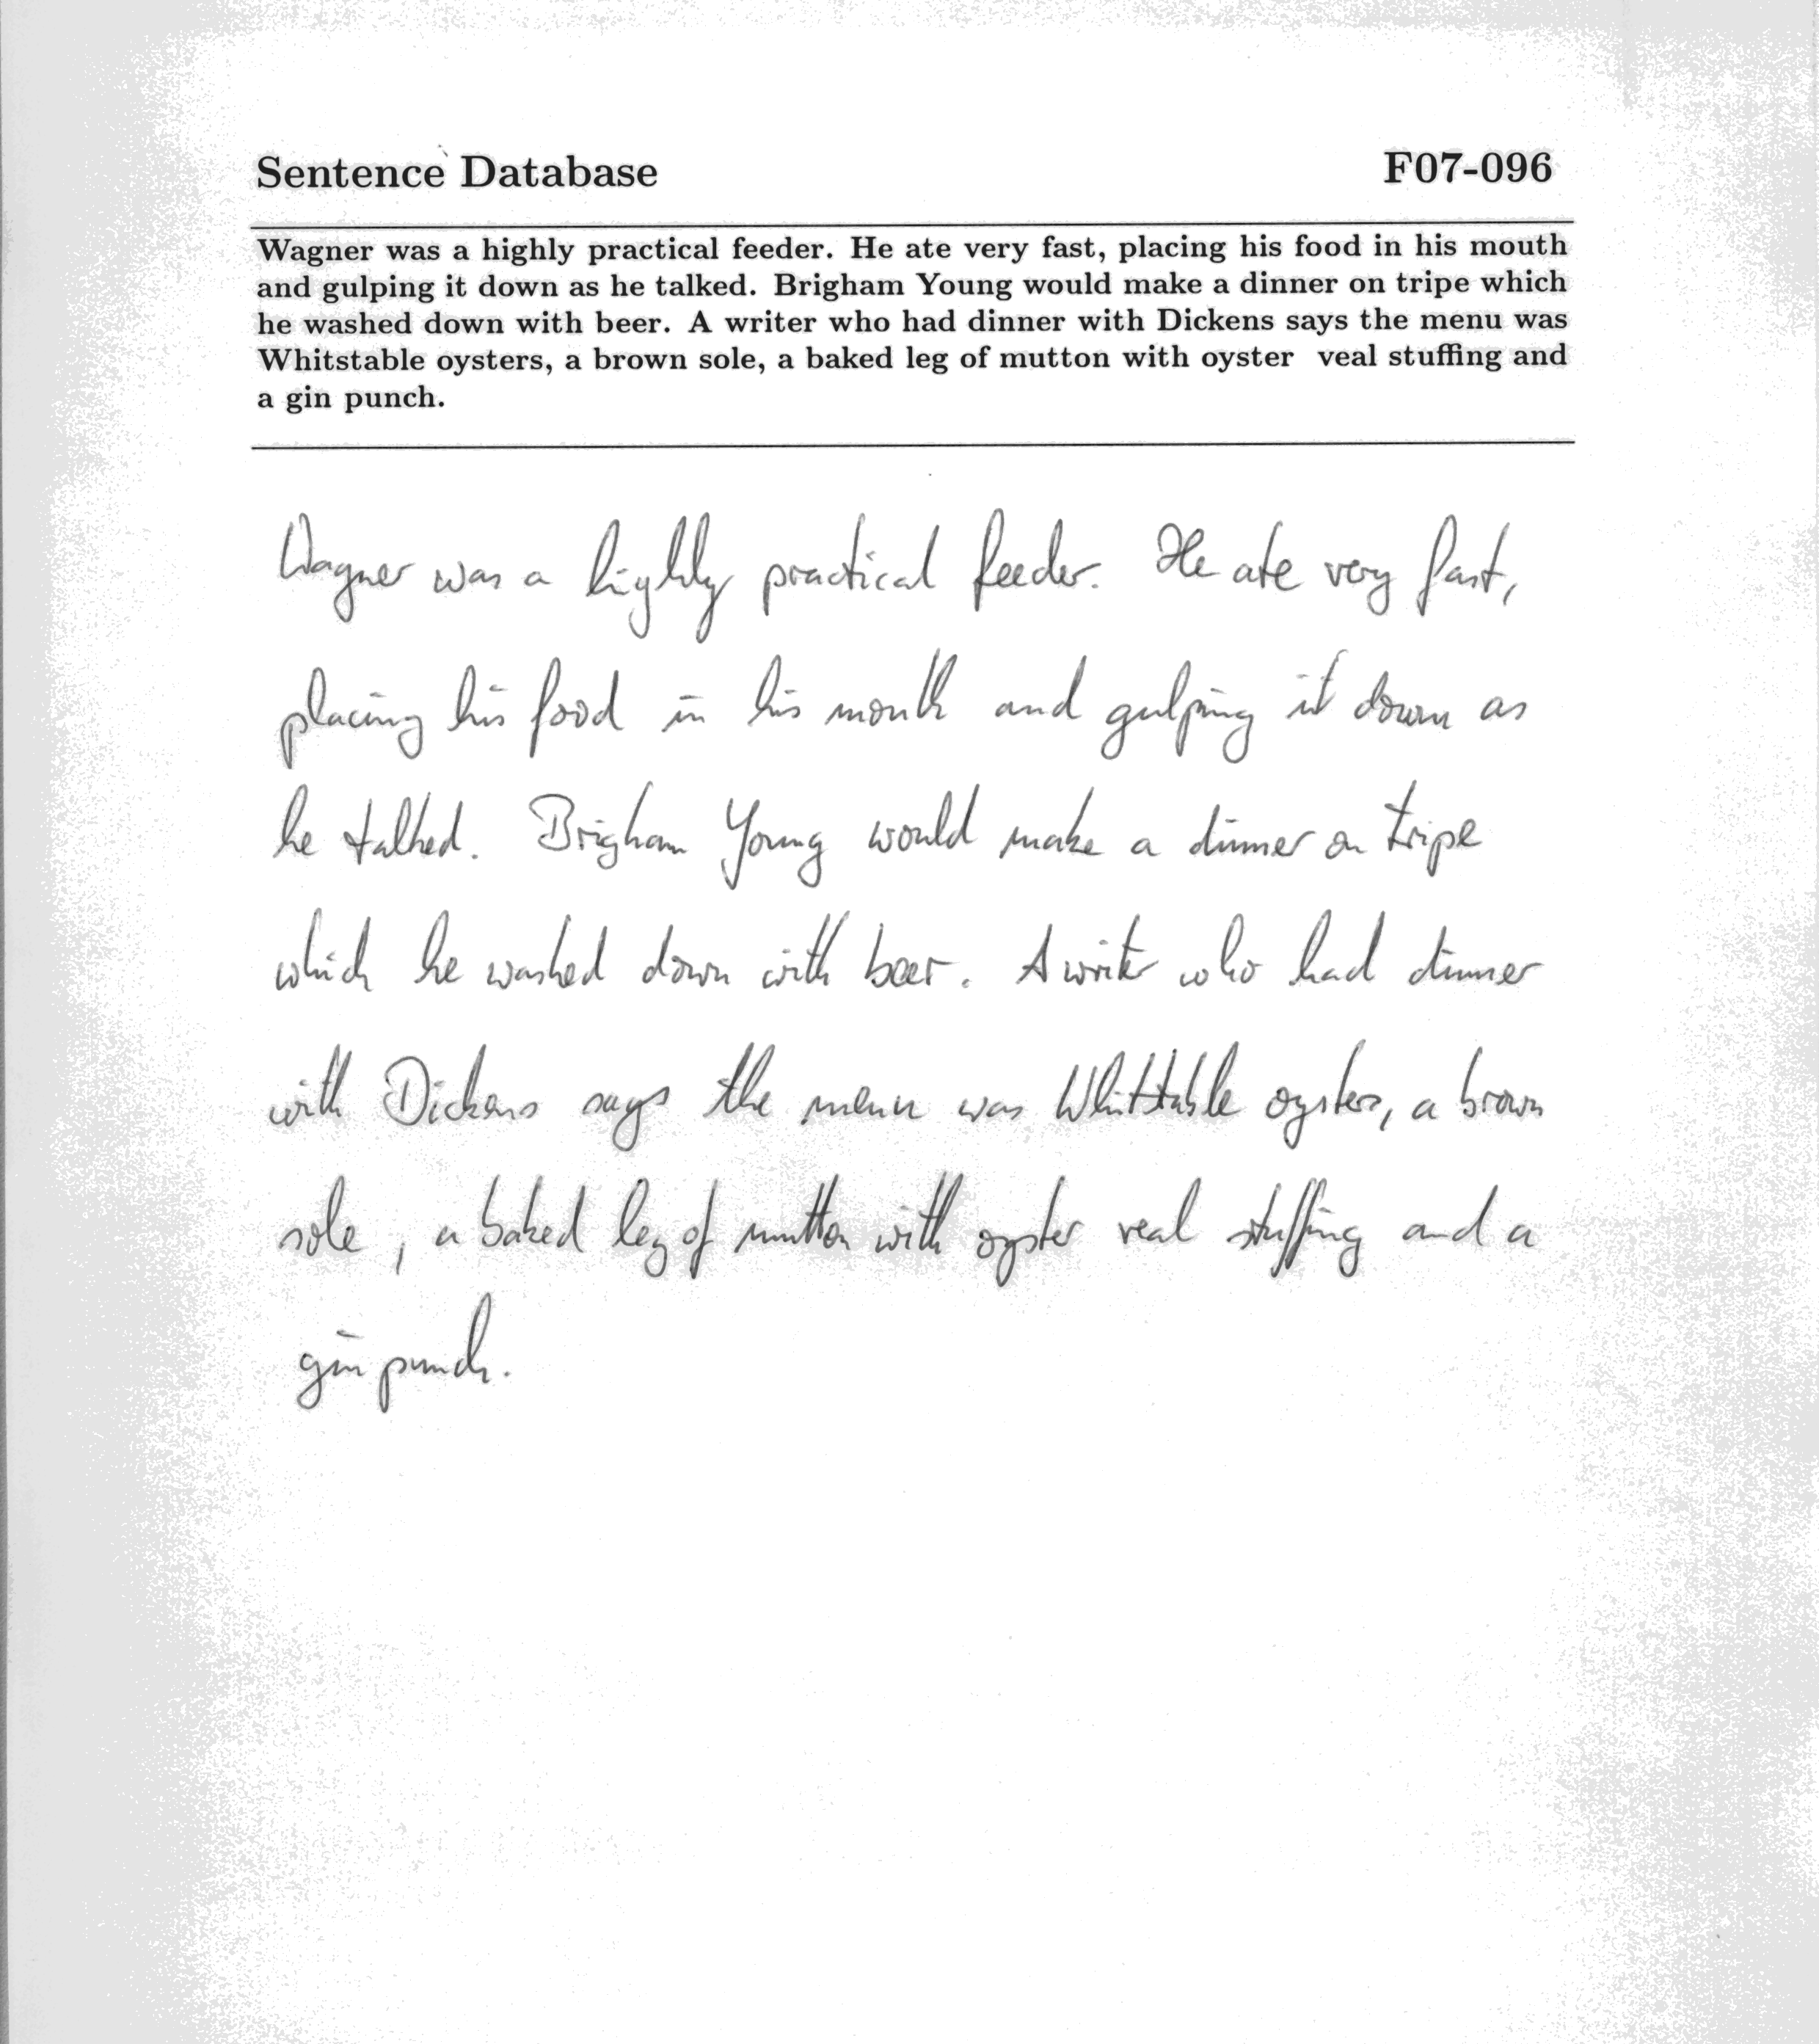 Sentence Database F07-096
Wagner was a highly practical feeder. He ate very fast, placing his food in his mouth
and gulping it down as he talked. Brigham Young would make a dinner on tripe which
he washed down with beer. A writer who had dinner with Dickens says the menu was
Whitstable oysters, a brown sole, a baked leg of mutton with oyster veal stuffing and
a gin punch.
Wagner was a highly practical feeder. He ate very fast,
placing his food in his mouth and gulping it down as
he talked. Brigham Young would make a dinner on tripe
which he washed down with beer. A writer who had dinner
with Dickens says the menu was Whitstable oysters, a brown
sole, a baked leg of mutton with oyster veal stuffing and a
gin punch.